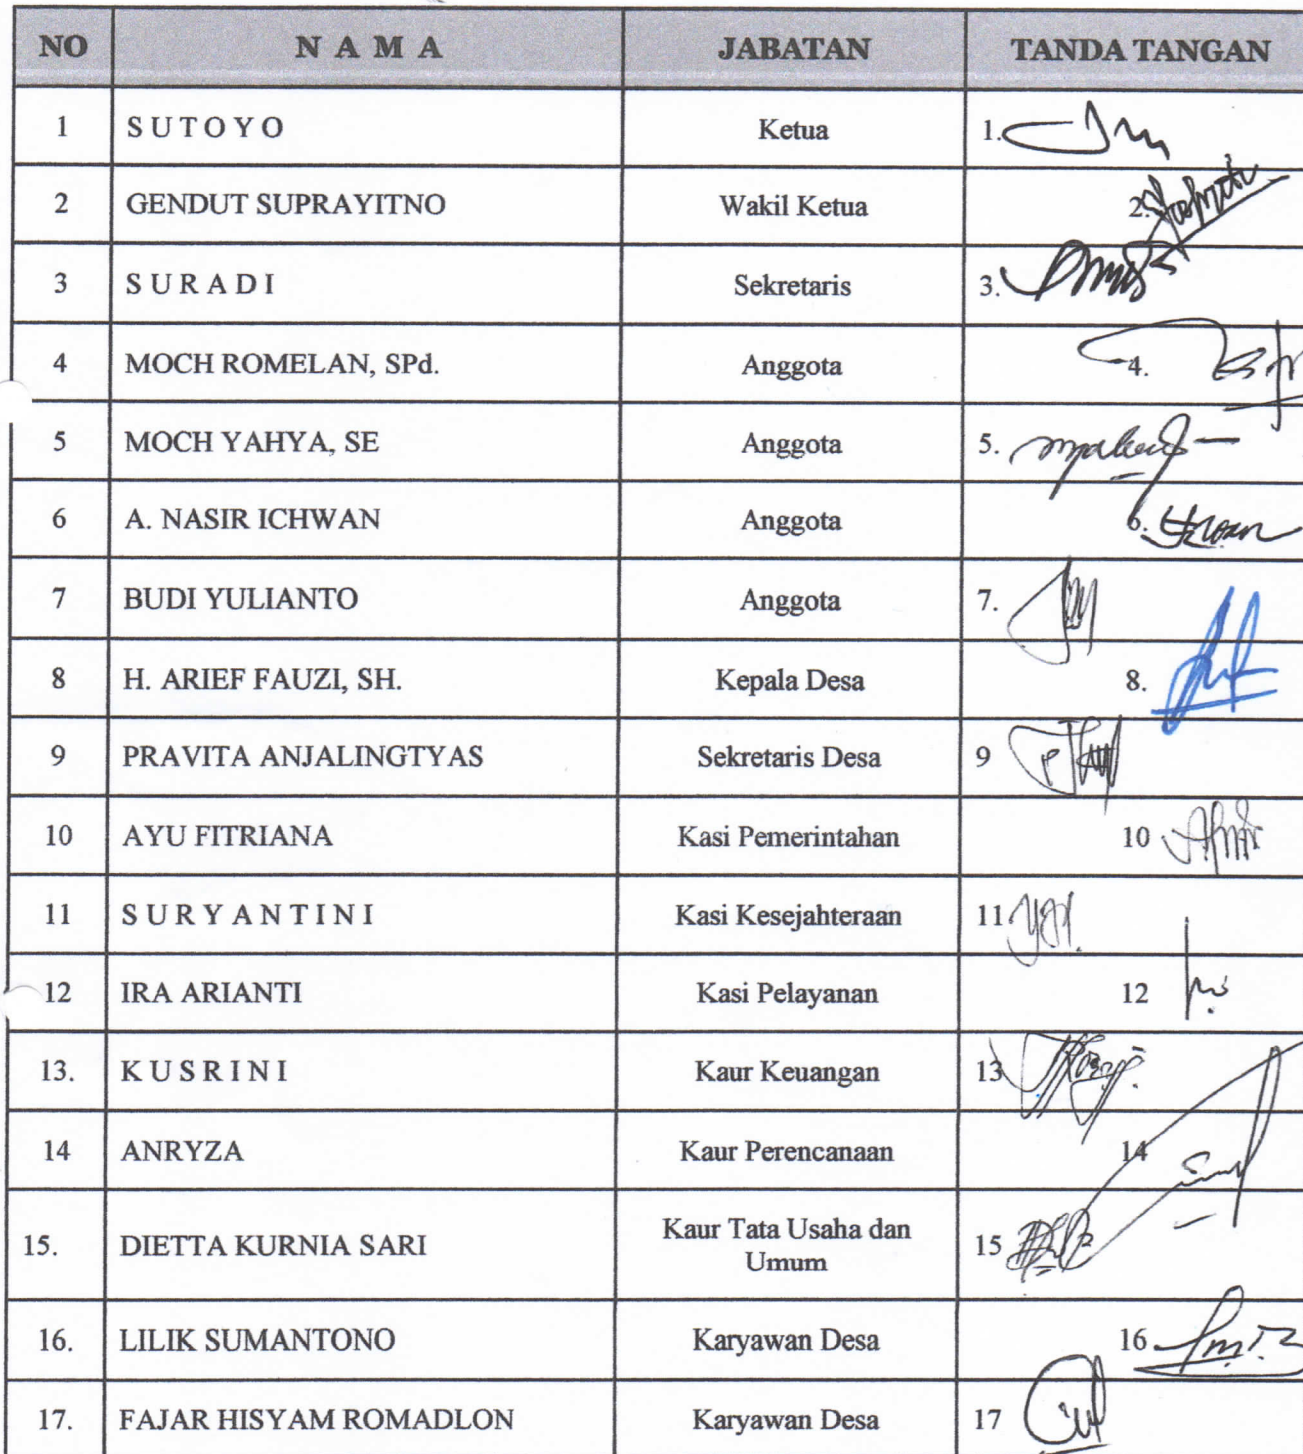 NO N A M A JABATAN TANDA TANGAN
1 S U T O Y O Ketua 1.
2 GENDUT SUPRAYITNO Wakil Ketua 2.
3 S U R A D I Sekretaris 3.
4 MOCH ROMELAN, SPd. Anggota 4.
5 MOCH YAHYA, SE Anggota 5.
6 A. NASIR ICHWAN Anggota 6.
7 BUDI YULIANTO Anggota 7.
8 H. ARIEF FAUZI, SH. Kepala Desa 8.
9 PRAVITA ANJALINGTYAS Sekretaris Desa 9
10 AYU FITRIANA Kasi Pemerintahan 10
11 S U R Y A N T I N I Kasi Kesejahteraan 11
12 IRA ARIANTI Kasi Pelayanan 12
13. K U S R I N I Kaur Keuangan 13
14 ANRYZA Kaur Perencanaan 14
15. DIETTA KURNIA SARI Kaur Tata Usaha dan 15
Umum
16. LILIK SUMANTONO Karyawan Desa 16
17. FAJAR HISYAM ROMADLON Karyawan Desa 17